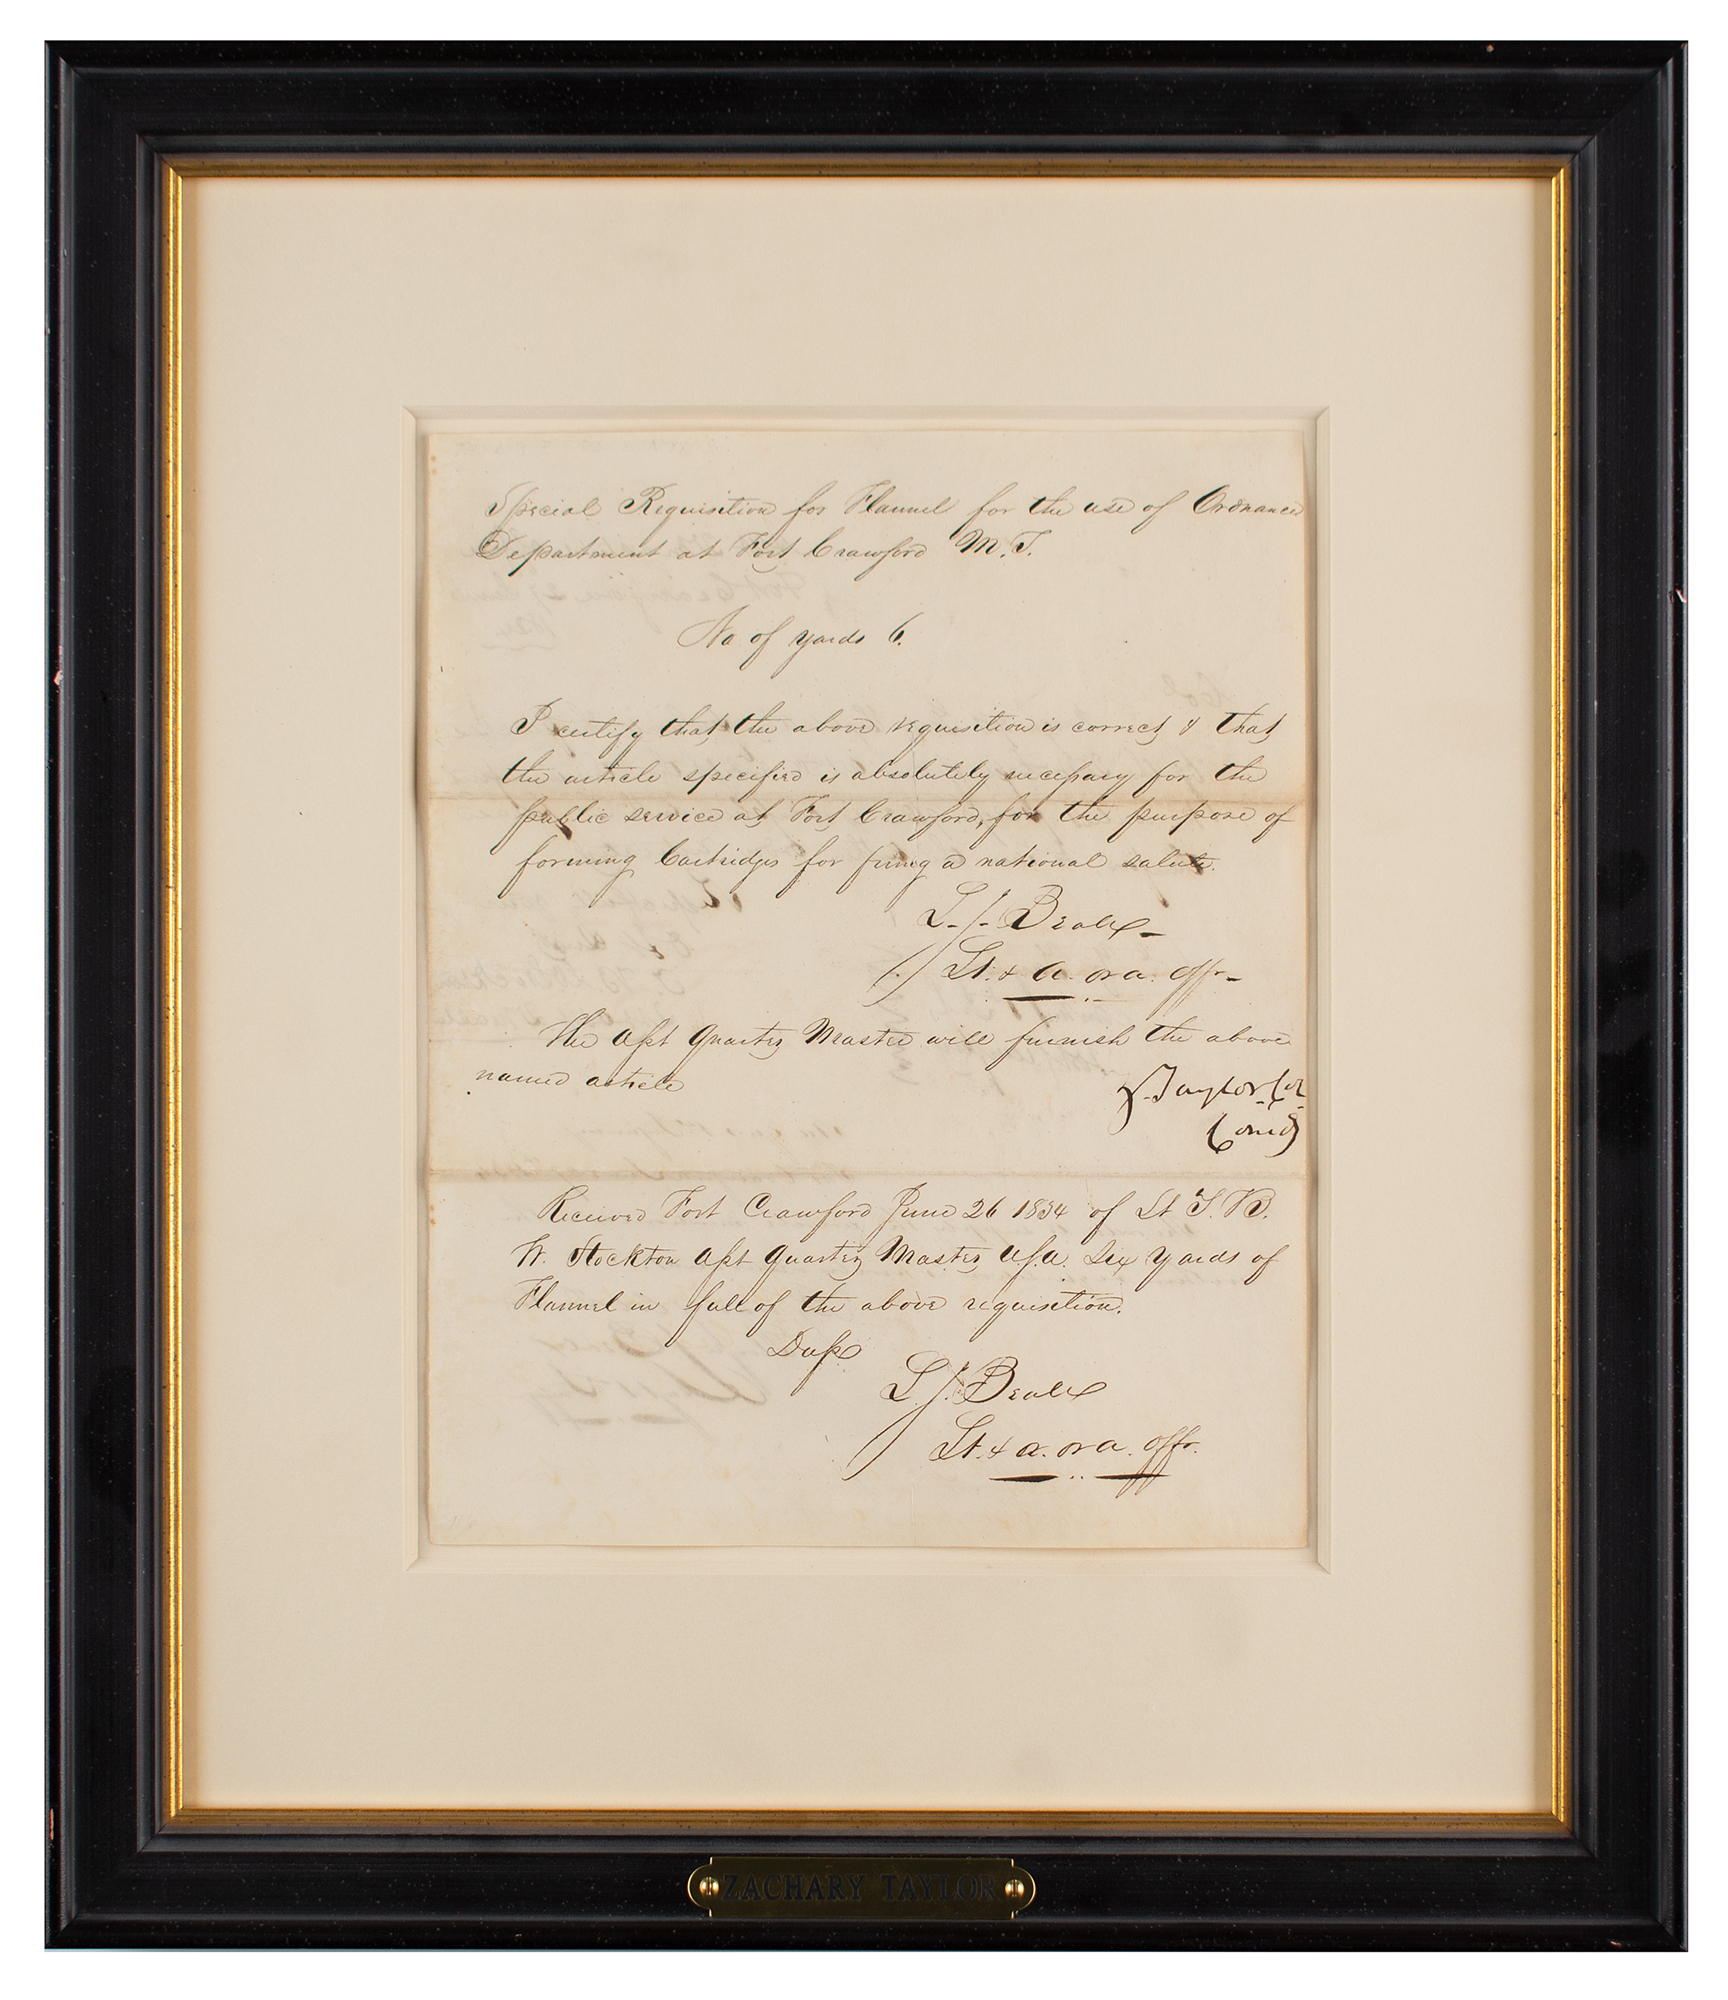 Special Requisition for Flannel for the use of Ordnance
Department at Fort Crawford M.T.
No of yards 6.
I certify that the above requisition is correct & that
the article specified is absolutely necessary for the
public service at Fort Crawford, for the purpose of
forming Cartridges for firing a national salute.
L. J. Beall
Lt. & a. ord. offr.
The Asst Quarter Master will furnish the above
named article
Z. Taylor Col
Comd
Received Fort Crawford June 26 1834 of Lt T. B.
W. Stockton Asst Quarter Master U.S.A. Six yards of
Flannel in full of the above requisition.
Dups
L. J. Beall
Lt. & a. ord. offr.
ZACHARY TAYLOR